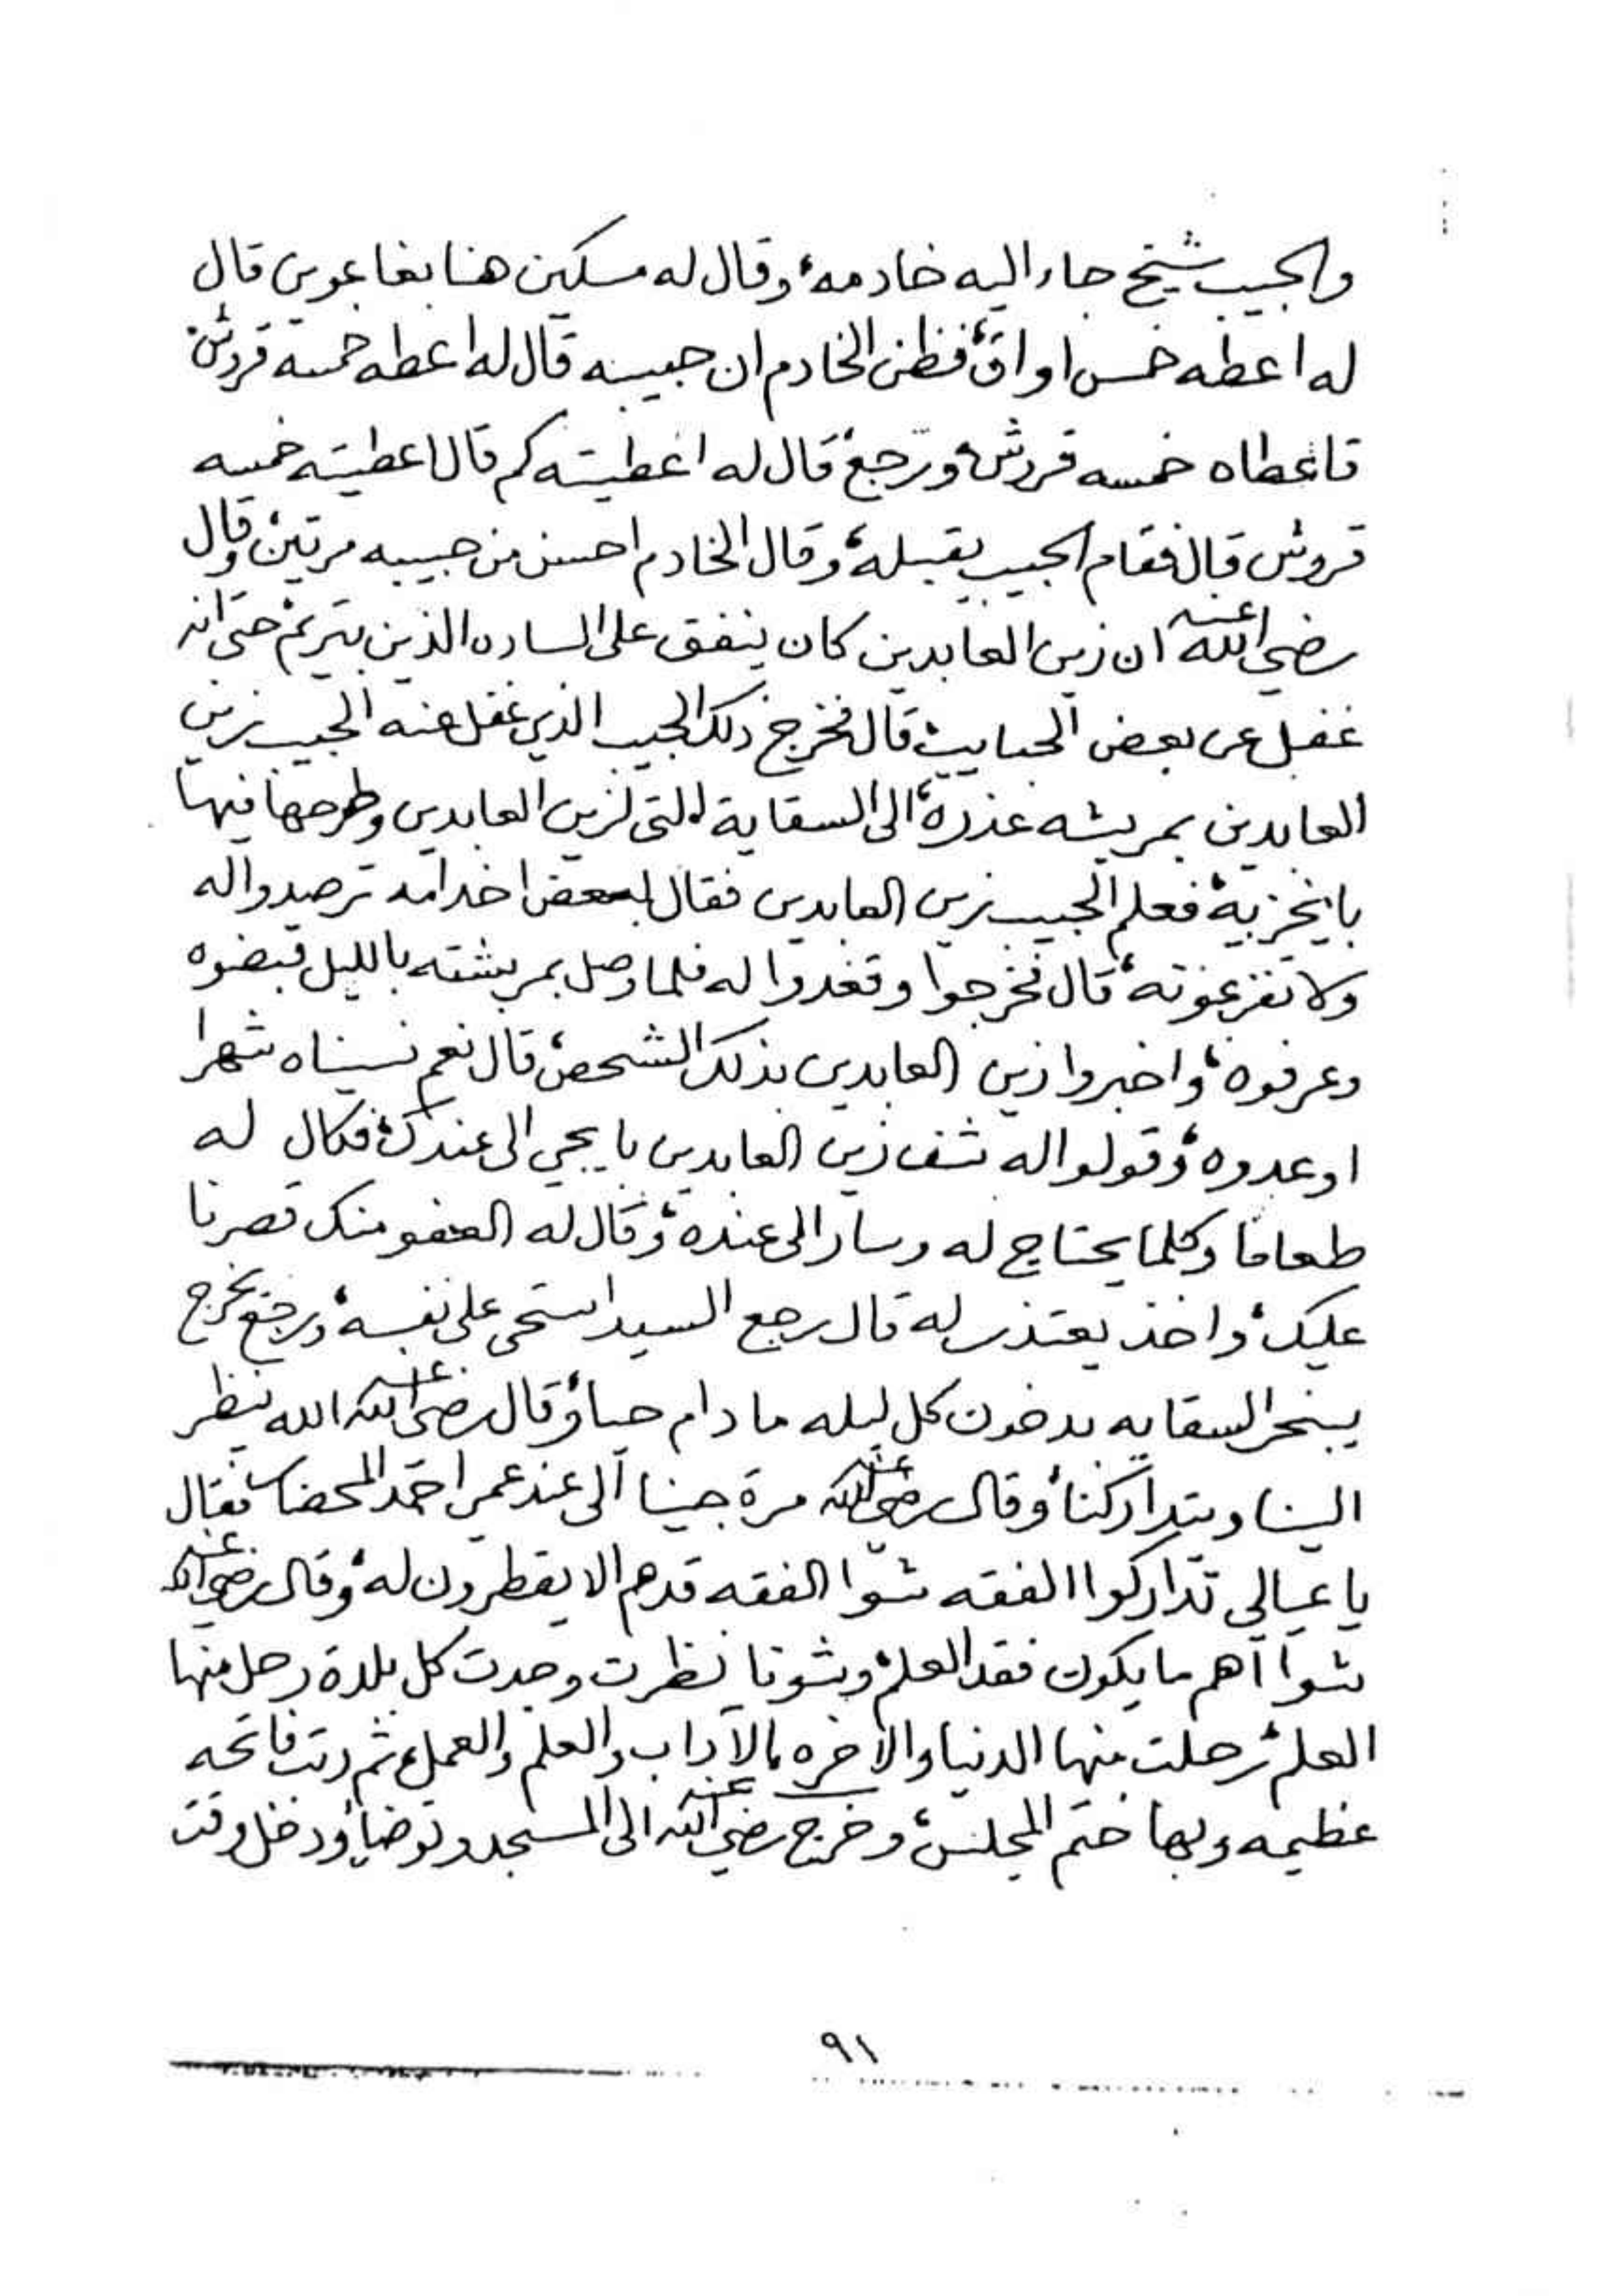 والحبيب شيخ جاء اليه خادمه، وقال له مسكين هنا بغا عوين قال
له اعطه خمس اواق، فظن الخادم ان حبيبه قال له اعطه خمسه قروش،
فاعطاه خمسه قروش، ورجع، قال له اعطيته كم قال اعطيته خمسه
قروش قال فقام الحبيب يقبله، وقال الخادم احسن من حبيبه مرتين، وقال
رضي الله عنه ان زين العابدين كان ينفق على الساده الذين بتريم، حتى انه
غفل عن بعض الحبايب، قال فخرج ذلك الحبيب الذي غفل عنه الحبيب زين
العابدين بمريشه عذره، الى السقاية التي لزين العابدين وطرحها فيها
با يخزيه، فعلم الحبيب زين العابدين فقال لبعض اخدامه ترصدوا له
ولا تفزعونه، قال فخرجوا وقعدوا له فلما وصل بمريشته بالليل قبضوه
وعرفوه، واخبروا زين العابدين بذلك الشخص، قال نعم نسيناه شهرا
اوعدوه، وقولوا له شف زين العابدين با يجي الى عندك، فكال له
طعاما وكلما يحتاج له وسار الى عنده، وقال له العفو منك قصرنا
عليك، واخذ يعتذر له قال رجع السيد استحى على نفسه، ورجع يخرج
يبخر السقايه بدخون كل ليله ما دام حيا، وقال رضي الله عنه الله ينظر
الينا ويتداركنا، وقال رضي الله عنه مرة جينا الى عند عمي احمد المحضار، فقال
يا عيالي تداركوا الفقه شوا الفقه قدهم الا يقطرون له، وقال رضي الله عنه
شوا اهم ما يكون فقد العلم، وشونا نظرت وجدت كل بلدة رحل منها
العلم، رحلت منها الدنيا والاخره بالآداب والعلم والعمل، ثم رتب فاتحه
عظيمه وبها ختم المجلس، وخرج رضي الله عنه الى المسجد وتوضأ، ودخل وقت
٩١